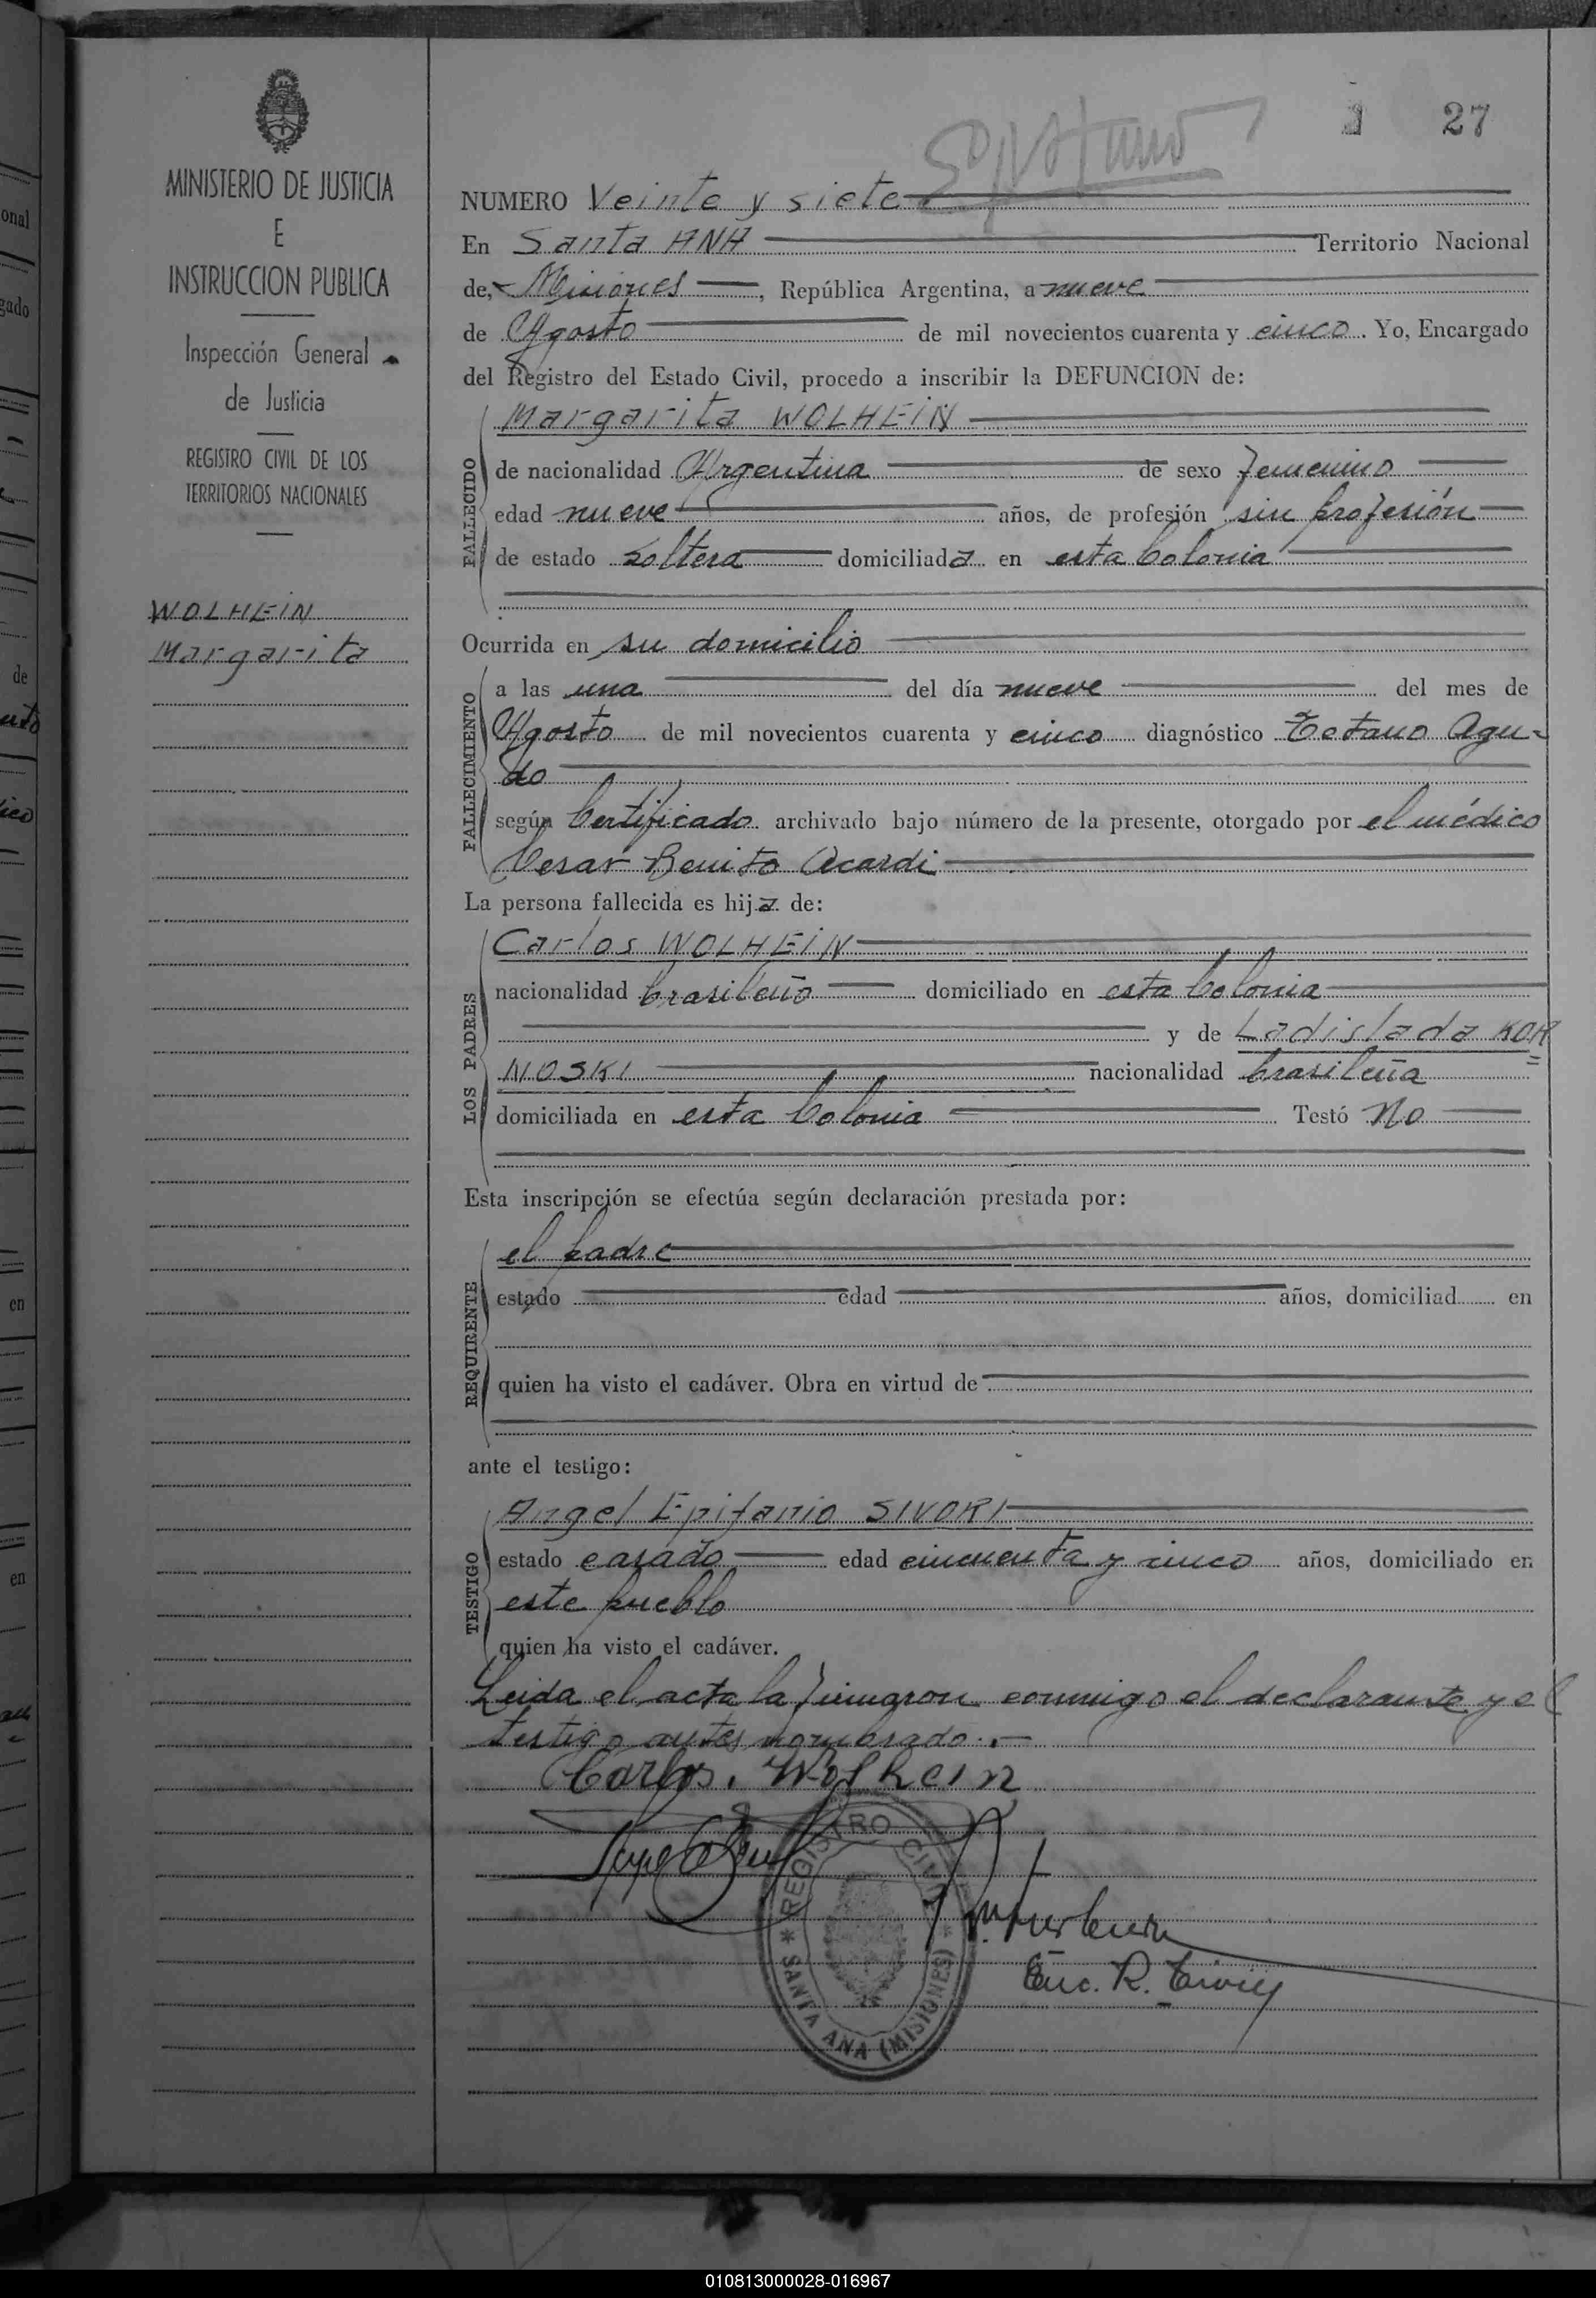 27
MINISTERIO DE JUSTICIA
E
INSTRUCCION PUBLICA
Inspección General
de Justicia
REGISTRO CIVIL DE LOS
TERRITORIOS NACIONALES
WOLHEIN
Margarita
NUMERO Veinte y siete
En Santa ANA Territorio Nacional
de, Misiones, República Argentina, a nueve
de Agosto de mil novecientos cuarenta y cinco. Yo, Encargado
del Registro del Estado Civil, procedo a inscribir la DEFUNCION de:
FALLECIDO
Margarita WOLHEIN
de nacionalidad Argentina de sexo femenino
edad nueve años, de profesión sin profesión
de estado soltera domiciliada en esta Colonia
Ocurrida en su domicilio
FALLECIMIENTO
a las una del día nueve del mes de
Agosto de mil novecientos cuarenta y cinco diagnóstico Tetano Agu-
do
según Certificado archivado bajo número de la presente, otorgado por el médico
Cesar Benito Acardi
La persona fallecida es hija de:
LOS PADRES
Carlos WOLHEIN
nacionalidad brasileño domiciliado en esta Colonia
y de Ladislada KOR
=
NOSKI nacionalidad brasileña
domiciliada en esta Colonia Testó No
Esta inscripción se efectúa según declaración prestada por:
REQUIRENTE
el padre
estado edad años, domiciliad en
quien ha visto el cadáver. Obra en virtud de
ante el testigo:
TESTIGO
Angel Epifanio SIVORI
estado casado edad cincuenta y cinco años, domiciliado en
este pueblo
quien ha visto el cadáver.
Leida el acta la firmaron conmigo el declarante y el
testigo antes nombrado.-
Carlos. Wolhein
REGISTRO CIVIL
* SANTA ANA (MISIONES) *
Enc. R. Civil
010813000028-016967